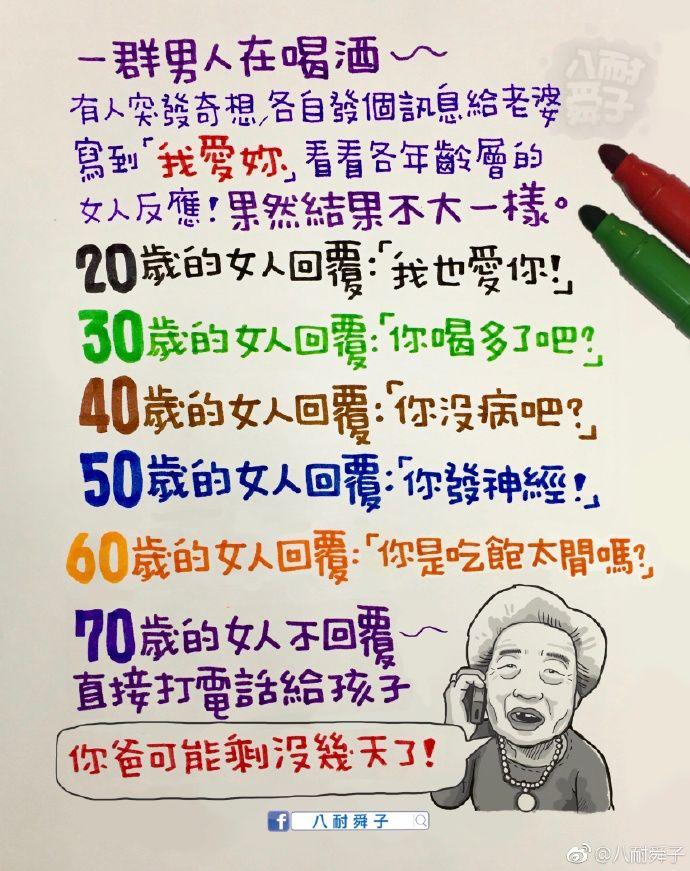 八耐
舜子
一群男人在喝酒～
有人突發奇想,各自發個訊息給老婆
寫到「我愛妳」看看各年齡層的
女人反應!果然結果不大一樣。
20歲的女人回覆:「我也愛你!」
30歲的女人回覆:「你喝多了吧?」
40歲的女人回覆:「你沒病吧?」
50歲的女人回覆:「你發神經!」
60歲的女人回覆:「你是吃飽太閒嗎?」
70歲的女人不回覆～
直接打電話給孩子
你爸可能剩沒幾天了!
f 八耐舜子
@八耐舜子